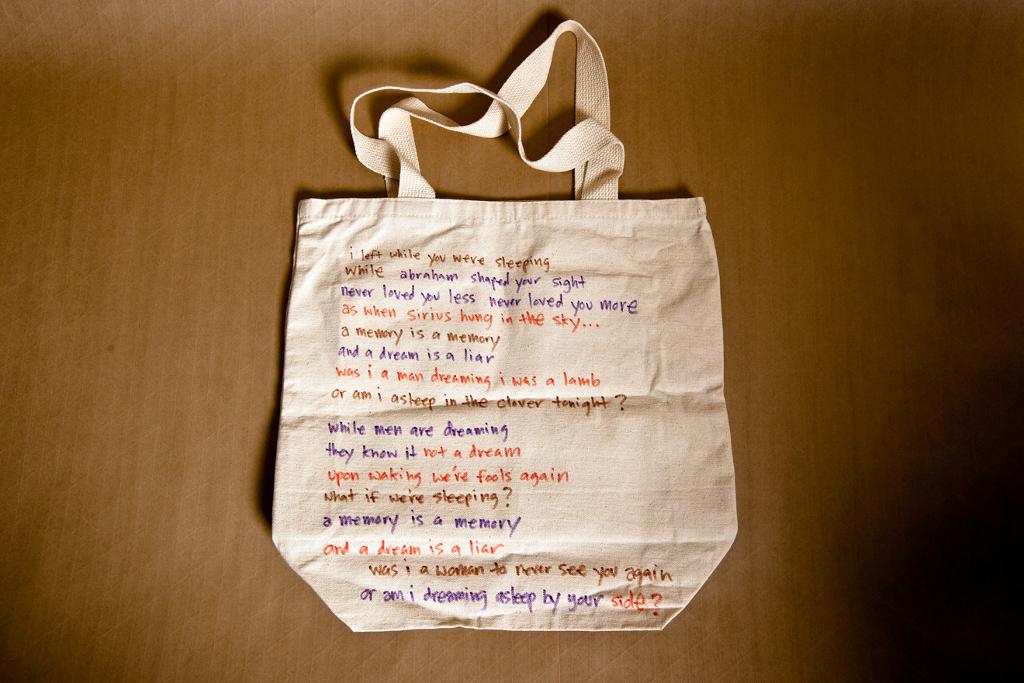 i left while you were sleeping
while abraham shaped your sight
never loved you less never loved you more
as when sirius hung in the sky...
a memory is a memory
and a dream is a liar
was i a man dreaming i was a lamb
or am i asleep in the clover tonight?
while men are dreaming
they know it not a dream
upon waking we're fools again
what if we're sleeping?
a memory is a memory
and a dream is a liar
was i a woman to never see you again
or am i dreaming asleep by your side?